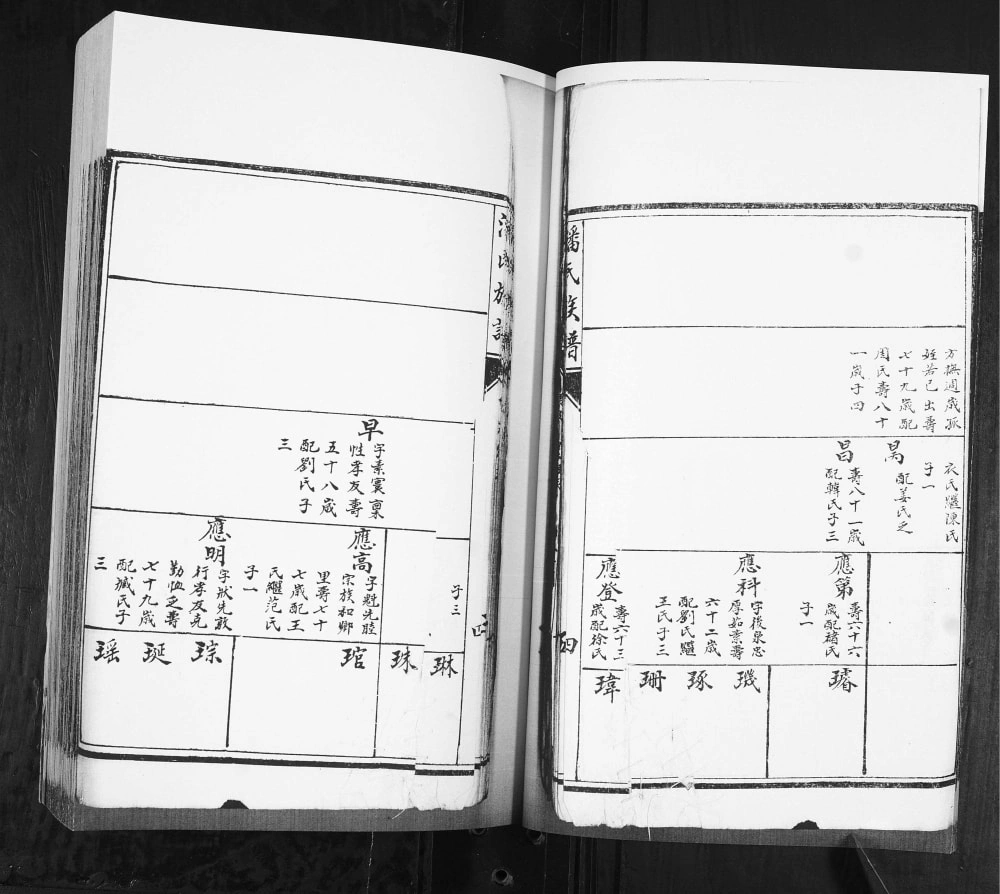 方撫週歲孤
姪若已出壽
七十九歲配
周氏壽八十
一歲子四
衣氏繼陳氏
子一
昊
配姜氏乏
昌
壽八十一歲
配韓氏子三
應第
壽六十六
歲配褚氏
子一
應科
字後泉忠
厚茹素壽
六十二歲
配劉氏繼
王氏子三
應登
壽六十三
歲配徐氏
璿
璣
琢
珊
瑋
潘氏族譜
四
子三
早
字素寰稟
性孝友壽
五十八歲
配劉氏子
三
應高
字魁先睦
宗族和鄉
里壽七十
七歲配王
氏繼范氏
子一
應明
字狀先敦
行孝友克
勤恤乏壽
七十九歲
配臧氏子
三
琳
珠
琯
琮
珽
瑶